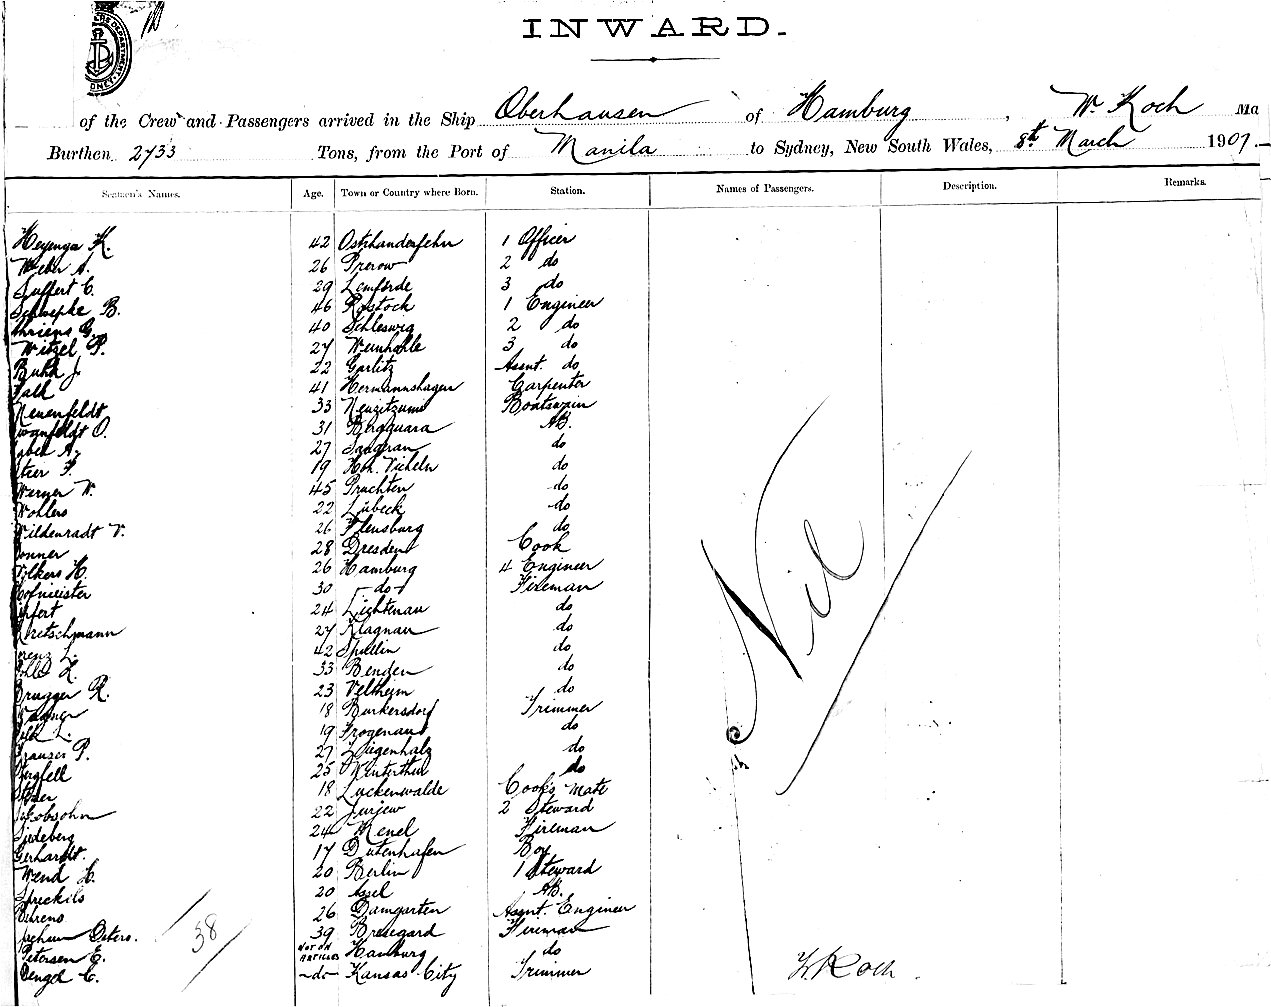 INWARD.
of the Crew and Passengers arrived in the Ship Oberhausen of Hamburg, W. Koch Ma
Burthen 2733 Tons, from the Port of Manila to Sydney, New South Wales, 8th March 1907.
Seamen's Names. Age. Town or Country where Born. Station. Names of Passengers. Description. Remarks.
Heyenga K. 42 Ostrhanderfehn 1 Officer
Weber A. 26 Prerow 2 do
Suffert C. 29 Lemförde 3 do
Schoepke B. 46 Rostock 1 Engineer
Ahriens G. 40 Schleswig 2 do
Witzel P. 27 3 do
Buhk J. 22 Garlitz Assnt. do
Falk 41 Hermannshagen Carpenter
Neuenfeldt 33 Boatswain
O. 31 Bergquara AB.
A. 27 do
F. 19 Hoh. Vicheln do
Werner W. 45 Pruchten do
Wohlers 22 Lübeck do
Wildenradt V. 26 Flensburg do
28 Dresden Cook
Völkers H. 26 Hamburg 4 Engineer
Hofmeister 30 -do- Fireman
24 Lichtenau do
Kretschmann 27 Klagnau do
Lorenz L. 42 do
K. 33 Benden do
Brugger R. 23 Veltheim do
18 Burkersdorf Trimmer
L. 19 Frogenau do
P. 27 do
25 Winterthur do
18 Luckenwalde Cook's Mate
Jakobsohn 22 Jurjew 2 Steward
Siedeberg 24 Fireman
Gerhardt. 17 Dutenhafen Boy
Wend H. 20 Berlin 1 Steward
Spreckils 20 Assel AB.
Behrens 26 Damgarten Assnt. Engineer
Jachum Osters. 39 Bresegard Fireman
Petersen E. NOT ON ARTICLES Hamburg do
Dengel C. -do- Kansas City Trimmer
38
Nil
W. Koch